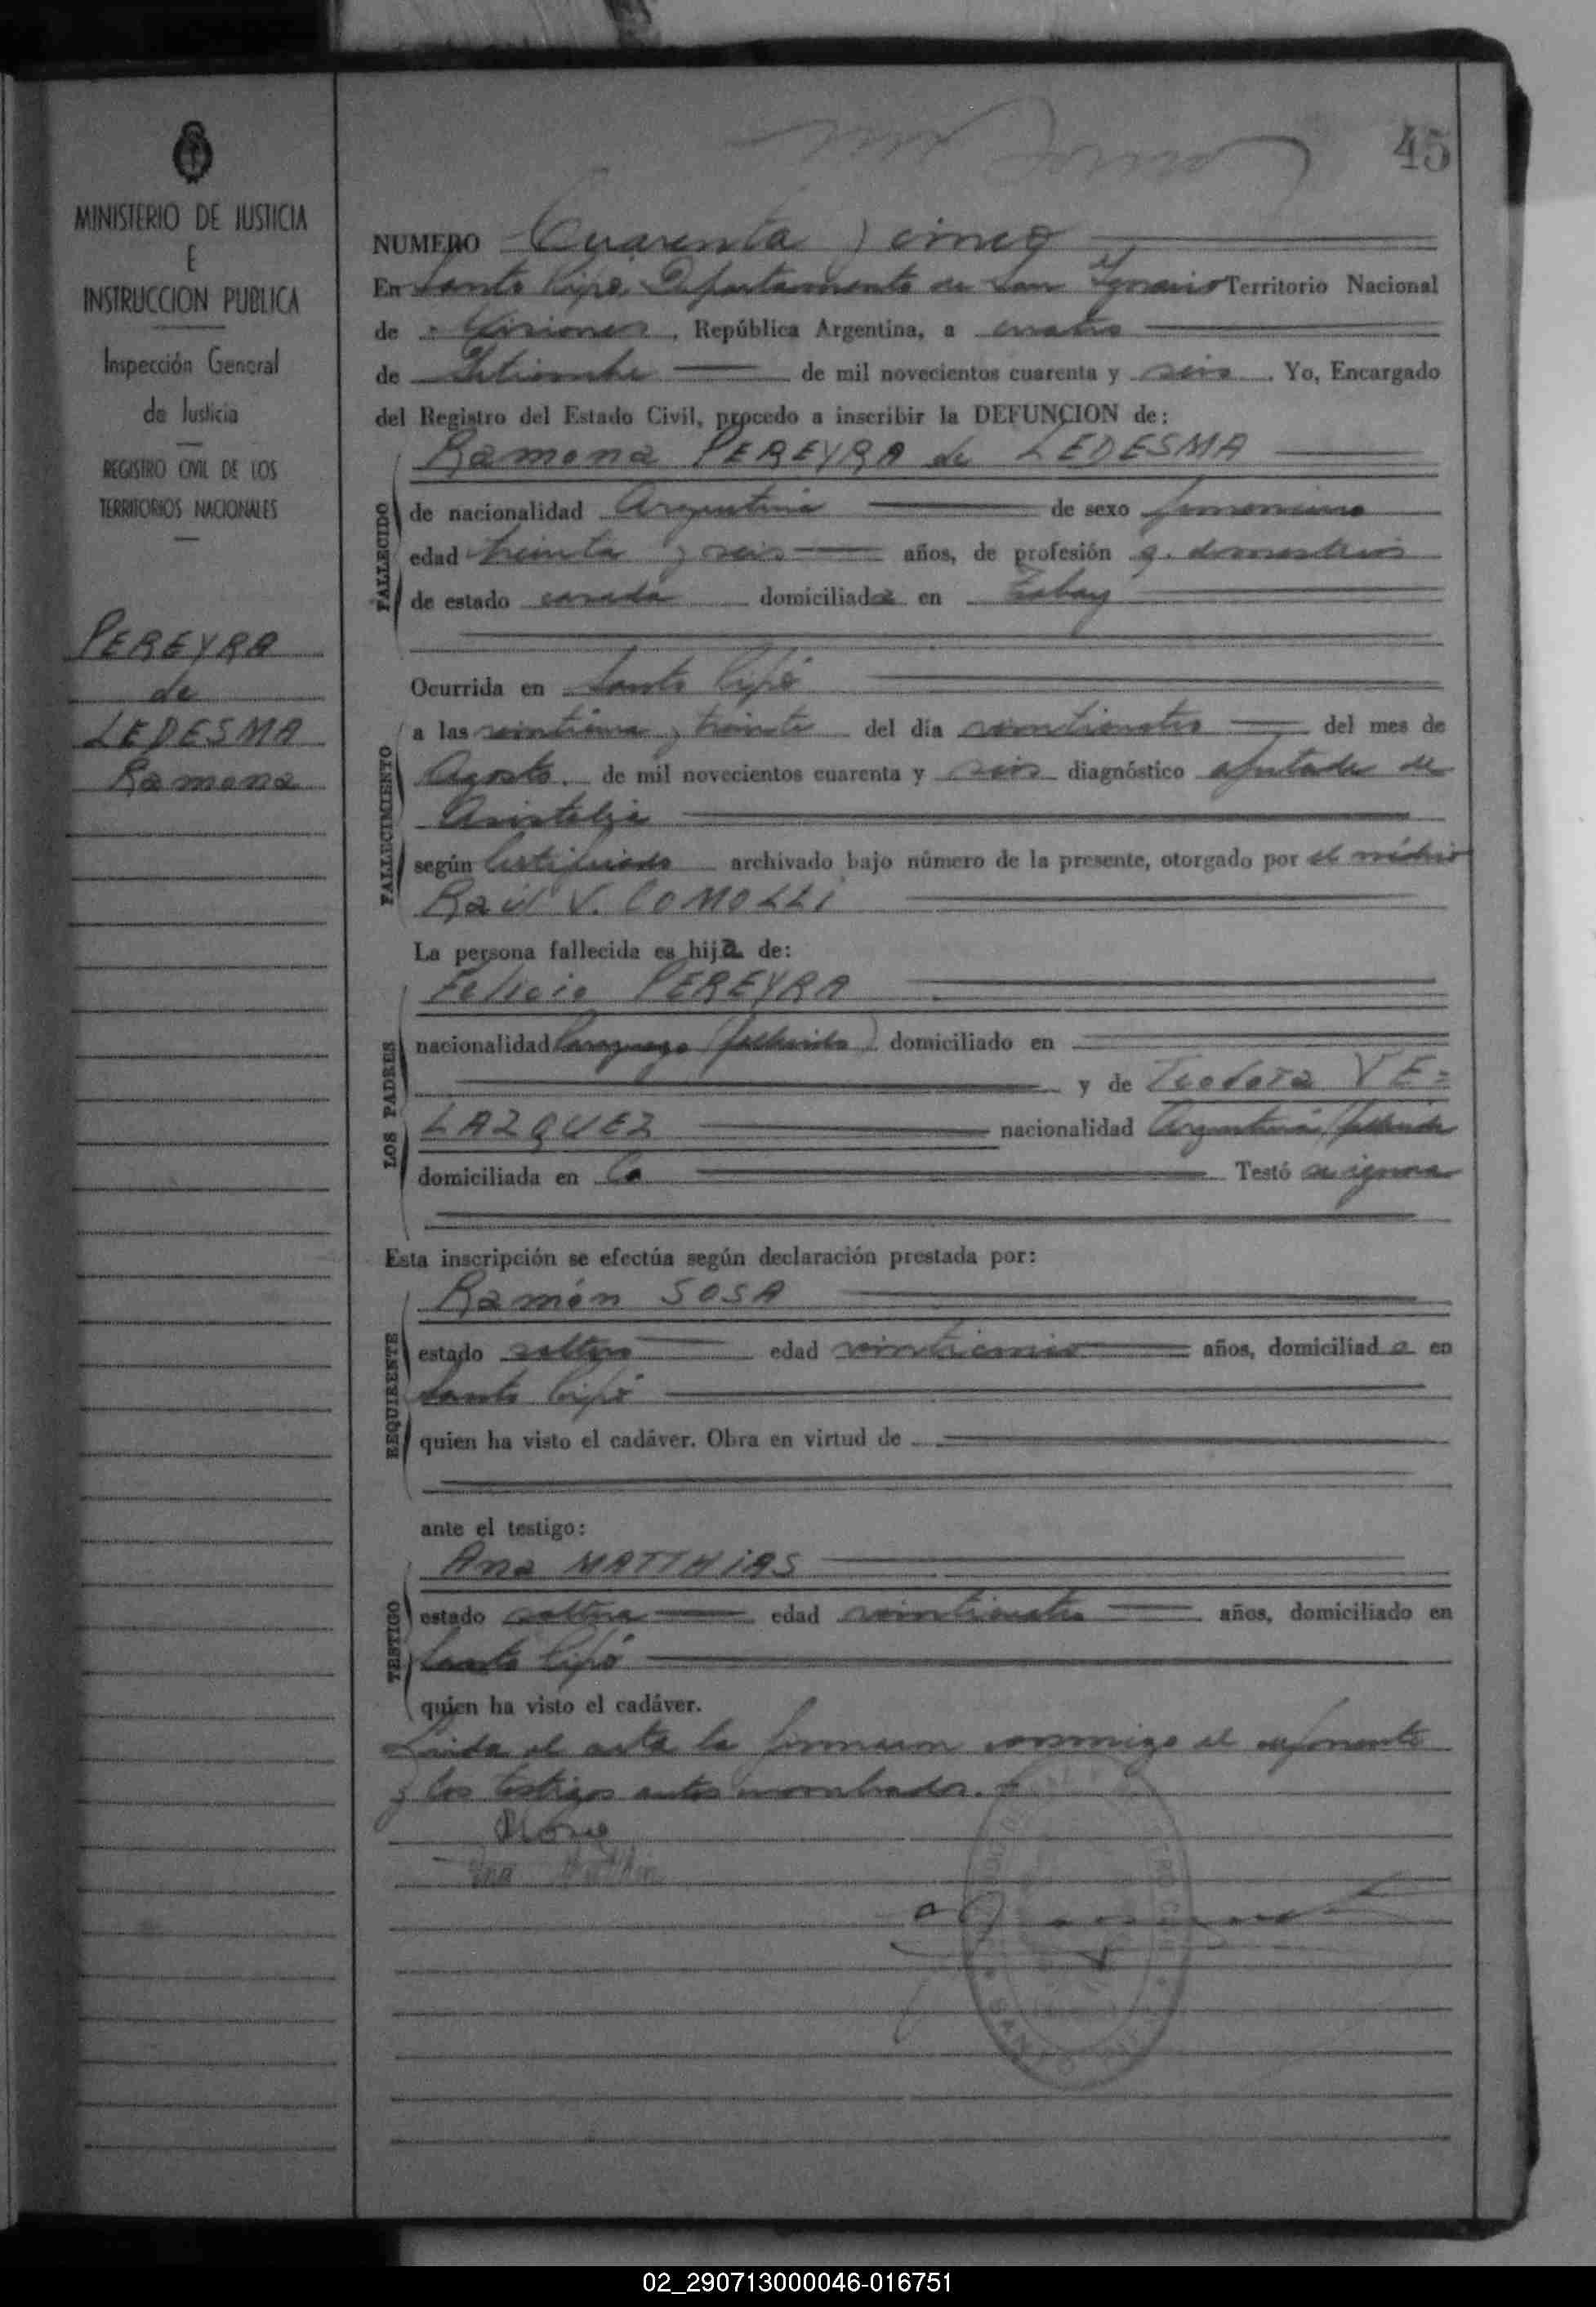 45
MINISTERIO DE JUSTICIA
E
INSTRUCCION PUBLICA
Inspección General
de Justicia
REGISTRO CIVIL DE LOS
TERRITORIOS NACIONALES
PEREYRA
de
LEDESMA
Ramona
NUMERO Cuarenta y cinco
En Santo Pipó Departamento de San Ignacio Territorio Nacional
de Misiones, República Argentina, a cuatro
de Setiembre de mil novecientos cuarenta y seis. Yo, Encargado
del Registro del Estado Civil, procedo a inscribir la DEFUNCION de:
Ramona PEREYRA de LEDESMA
FALLECIDO
de nacionalidad Argentina de sexo femenino
edad treinta y seis años, de profesión q. domesticos
de estado casada domiciliada en
Ocurrida en Santo Pipó
FALLECIMIENTO
a las y treinta del día veinticuatro del mes de
Agosto de mil novecientos cuarenta y seis diagnóstico de
según Certificado archivado bajo número de la presente, otorgado por el médico
Raúl V. COMOLLI
La persona fallecida es hija de:
LOS PADRES
Felicio PEREYRA
nacionalidad Paraguayo (fallecido) domiciliado en
y de Teodora VE=
LAZQUEZ nacionalidad Argentina, fallecida
domiciliada en Testó se ignora
Esta inscripción se efectúa según declaración prestada por:
REQUIRENTE
Ramón SOSA
estado soltero edad veinticinco años, domiciliado en
Santo Pipó
quien ha visto el cadáver. Obra en virtud de
ante el testigo:
TESTIGO
Ana MATTHIAS
estado soltera edad veinticuatro años, domiciliado en
Santo Pipó
quien ha visto el cadáver.
Leida el acta la firmaron conmigo el exponente
y los testigos antes nombrados.
Ana
SANTO
02_290713000046-016751